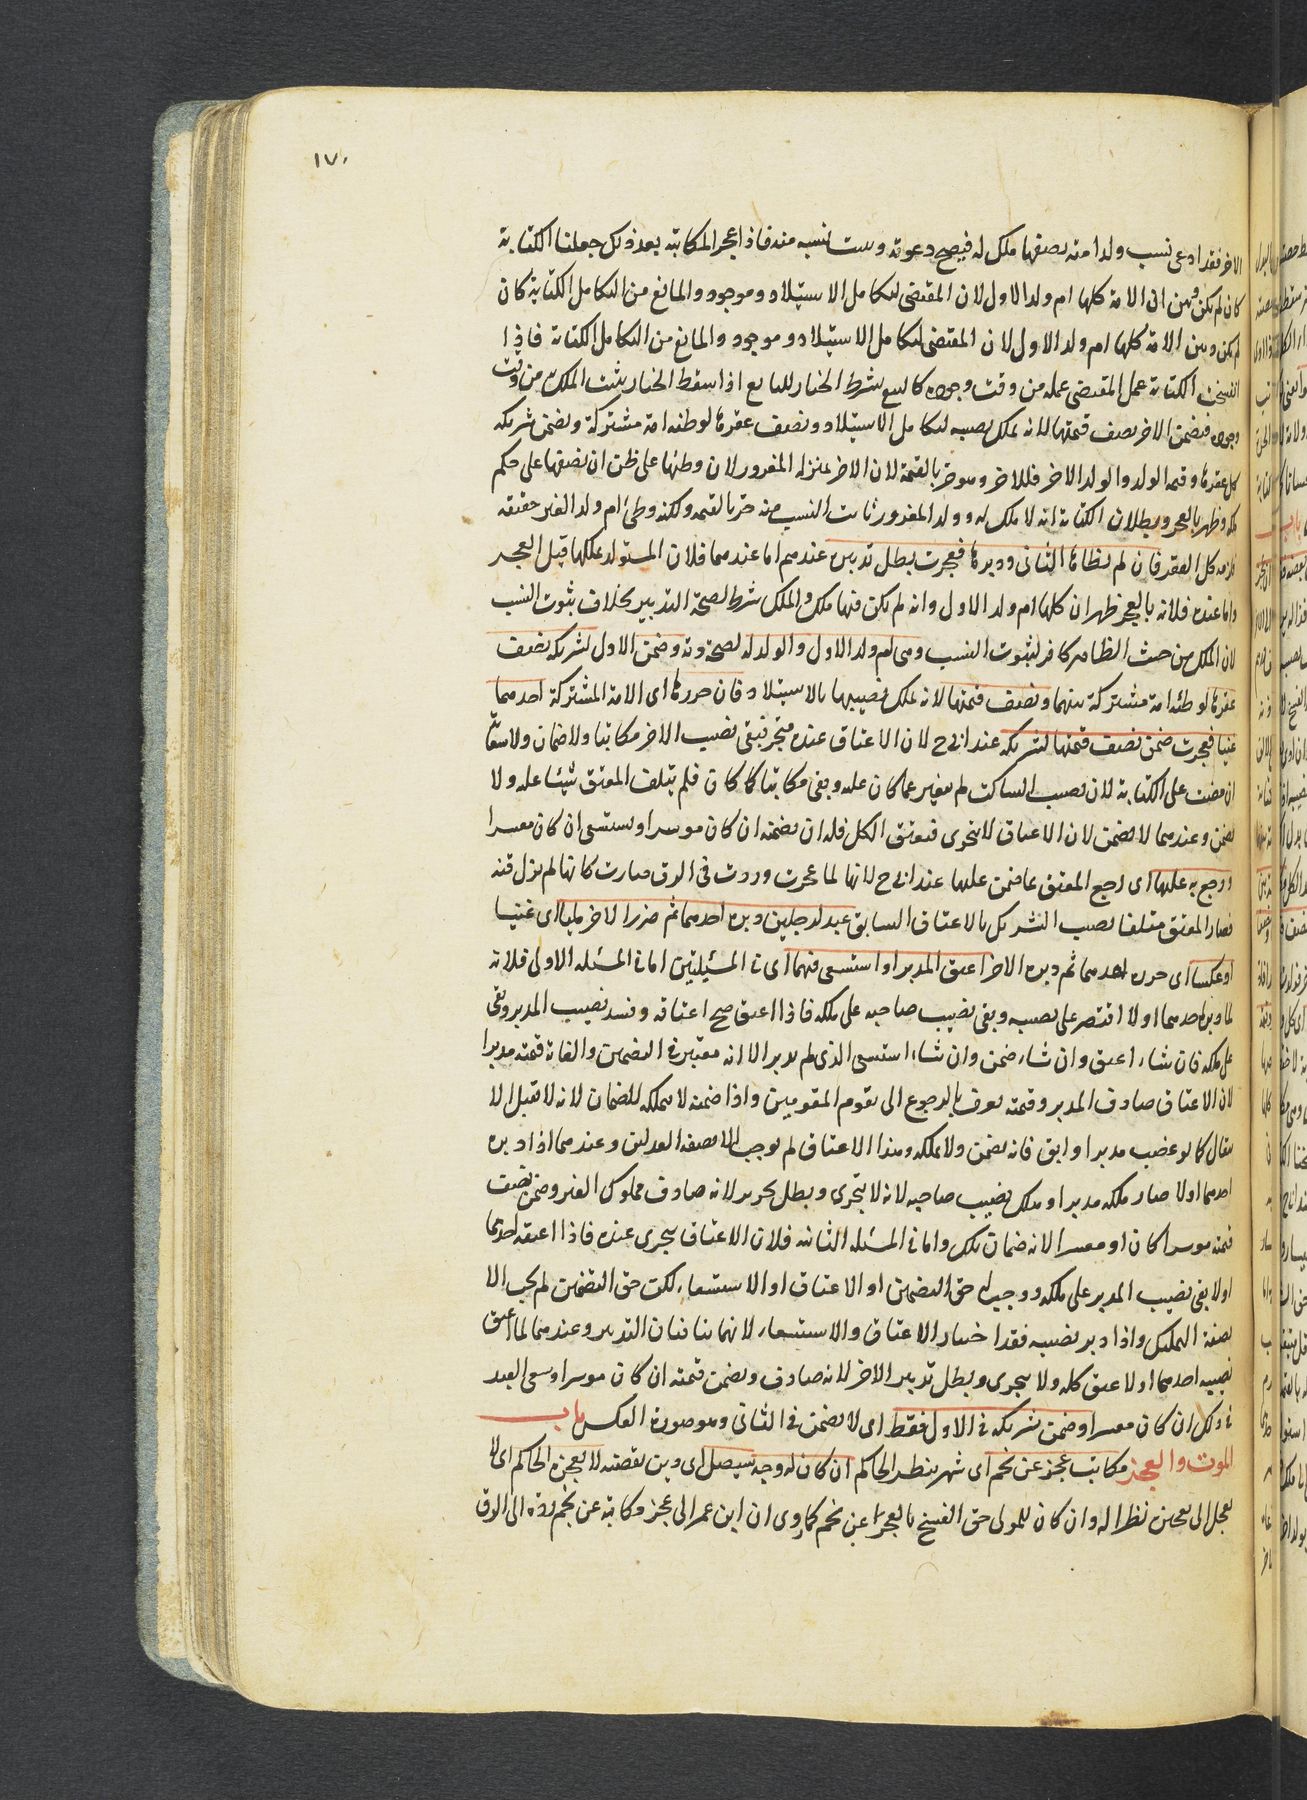 ١٧٠
الاخر فقد ادعى نسب ولد امته نصفها ملك له فيصح دعوته وثبت نسبه منه فاذا عجز المكاتبة بعد ذلك جعلنا الكتابة
كان لم يكن وتبين ان الامة كلها ام ولد الاول لان المقتضى لتكامل الاستيلاد موجود والمانع من التكامل الكتابة كان
لم يكن وتبين الامة كلها ام ولد الاول لان المقتضى لتكامل الاستيلاد موجود والمانع من التكامل الكتابة فاذا
انفسخت الكتابة عمل المقتضى عمله من وقت وجوده كالبيع بشرط الخيار للبايع اذا اسقط الخيار يثبت الملك من وقت
وجوده فيضمن الاخر نصف قيمتها لانه تملك نصيبه لتكامل الاستيلاد ونصف عقرها لوطئه امة مشتركة ويضمن شريكه
كل عقرها وقيمة الولد والولد الاخر فللاخر وهو حر بالقيمة لان الاخر بمنزلة المغرور لان وطئها على ظن ان نصفها على حكم
ملكه وظهر بالعجز وبطلان الكتابة انه لا ملك له وولد المغرور ثابت النسب منه حر بالقيمة ولكنه وطئ ام ولد الغير حقيقة
فلزمه كل العقر فان لم يطاها الثانى ودبرها فعجزت بطل تدبيره عندهم اما عندهما فلان المستولد تملكها قبل العجز
واما عنده فلانه بالعجز ظهر ان كلها ام ولد الاول وانه لم يكن فيها ملك والملك شرط لصحة التدبير بخلاف ثبوت النسب
لان الملك من حيث الظاهر كاف لثبوت النسب وهى ام ولد الاول والولد له لصحة دعوته وضمن الاول لشريكه نصف
عقرها لوطئه امة مشتركة بينهما ونصف قيمتها لانه تملك نصيبها بالاستيلاد فان حررها اى الامة المشتركة احدهما
غنيا فعجزت ضمن نصف قيمتها لشريكه عند ابى ح لان الاعتاق عنده متجز فبقى نصيب الاخر مكاتبا ولا ضمان ولا سعاية
ان مضت على الكتابة لان نصيب الساكت لم يتغير عما كان عليه وبقى مكاتبا كما كان فلم يتلف المعتق شيئا عليه ولا
يضمن وعندهما لا يضمن لان الاعتاق لا يتجزى فيعتق الكل فله ان يضمنه ان كان موسرا ويستسعى ان كان معسرا
ورجع به عليها اى رجع المعتق بما ضمن عليها عند ابى ح لانها لما عجزت وردت فى الرق صارت كانها لم تزل قنة
فصار المعتق متلفا نصيب الشريك بالاعتاق السابق عبد لرجلين دبره احدهما ثم حرره الاخر مليا اى غنيا
او عكسا اى حرره احدهما ثم دبره الاخر اعتق المدبر او استسعى فيهما اى فى المسئلتين اما فى المسئلة الاولى فلانه
لما دبره احدهما اولا اقتصر على نصيبه وبقى نصيب صاحبه على ملكه فاذا اعتق صح اعتاقه وفسد نصيب المدبر وبقى
على ملكه فان شاء اعتق وان شاء ضمن وان شاء استسعى الذى لم يدبر الا انه معتبر فى التضمين والغاية قيمته مدبرا
لان الاعتاق صادف المدبر وقيمته تعرف بالرجوع الى تقويم المقومين واذا ضمنه لا يتملكه للضمان لانه لا يقبل الا
نتقال كما لو غصب مدبرا وابق فانه يضمن ولا يملكه وهذا الاعتاق لم يوجب الا نصفه العدلين وعندهما اذا دبره
احدهما اولا صار ملكه مدبرا وتملك نصيب صاحبه لانه لا يتجزى وبطل تحريره لانه صادف مملوك الغير وضمن نصف
قيمته موسرا كان او معسرا لانه ضمان تملك واما فى المسئلة الثانية فلان الاعتاق يتجزى عنده فاذا اعتقه احدهما
اولا بقى نصيب المدبر على ملكه ووجب له حق التضمين او الاعتاق او الاستسعاء لكن حق التضمين لم يجب الا
بصفة التمليك واذا دبر نصيبه فقد اختار الاعتاق والاستسعاء لانهما ينافيان التدبير وعندهما لما اعتق
نصيبه احدهما اولا عتق كله ولا يتجزى وبطل تدبير الاخر لانه صادف ويضمن قيمته ان كان موسرا وسعى العبد
فى ذلك ان كان معسرا وضمن شريكه فى الاول فقط اى لا يضمن فى الثانى وهو صورة العكس باب
الموت والعجز مكاتب عجز عن نجم اى شهر ينظر الحاكم ان كان له وجه سيصل اى دين يقضيه لا يعجزه الحاكم اى لا
يعجل الى تعجيزه نظرا له وان كان للمولى حق الفسخ بالعجز عن نجم كما روى ان ابن عمر الى عجز مكاتبه عن نجم رده الى الرق